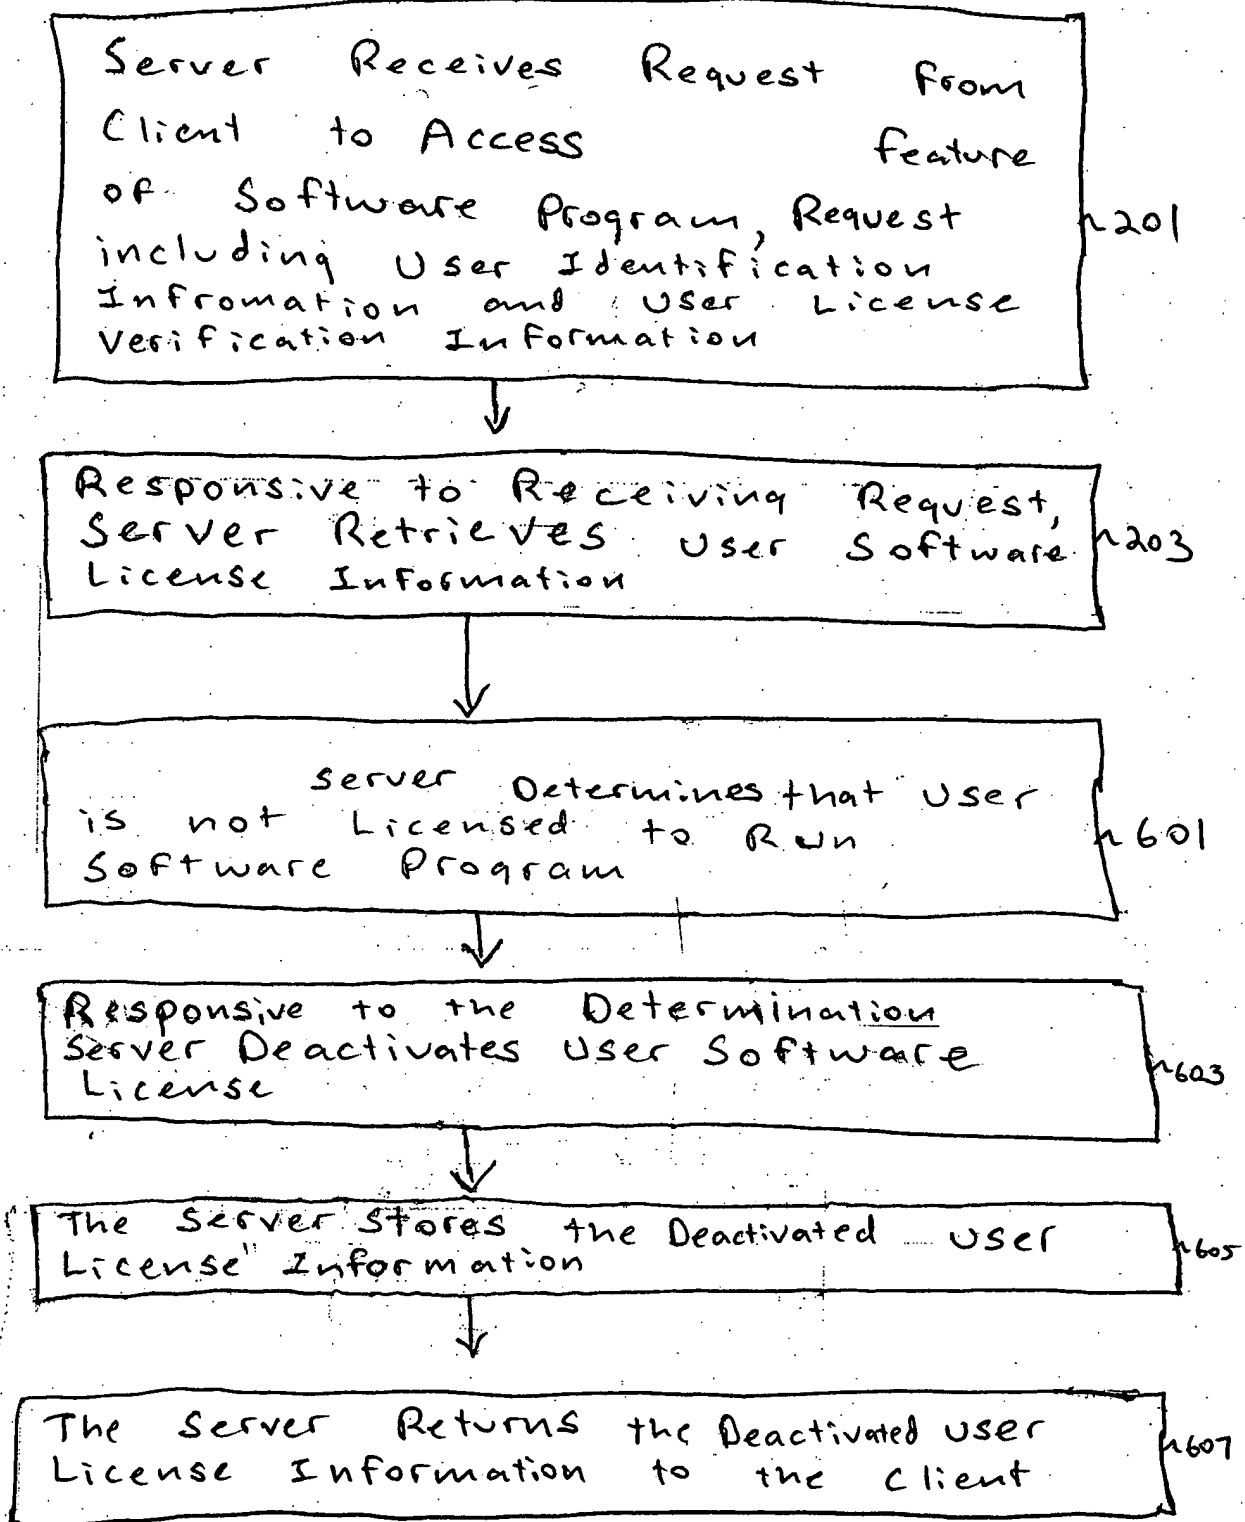 Server Receives Request From
Client to Access feature
of Software Program, Request
including User Identification
Infromation and User License
Verification Information
~201
Responsive to Receiving Request,
Server Retrieves User Software
License Information
~203
Server Determines that User
is not Licensed to Run
Software Program
~601
Responsive to the Determination
Server Deactivates User Software
License
~603
The Server Stores the Deactivated User
License" Information
~605
The Server Returns the Deactivated User
License Information to the Client
~607